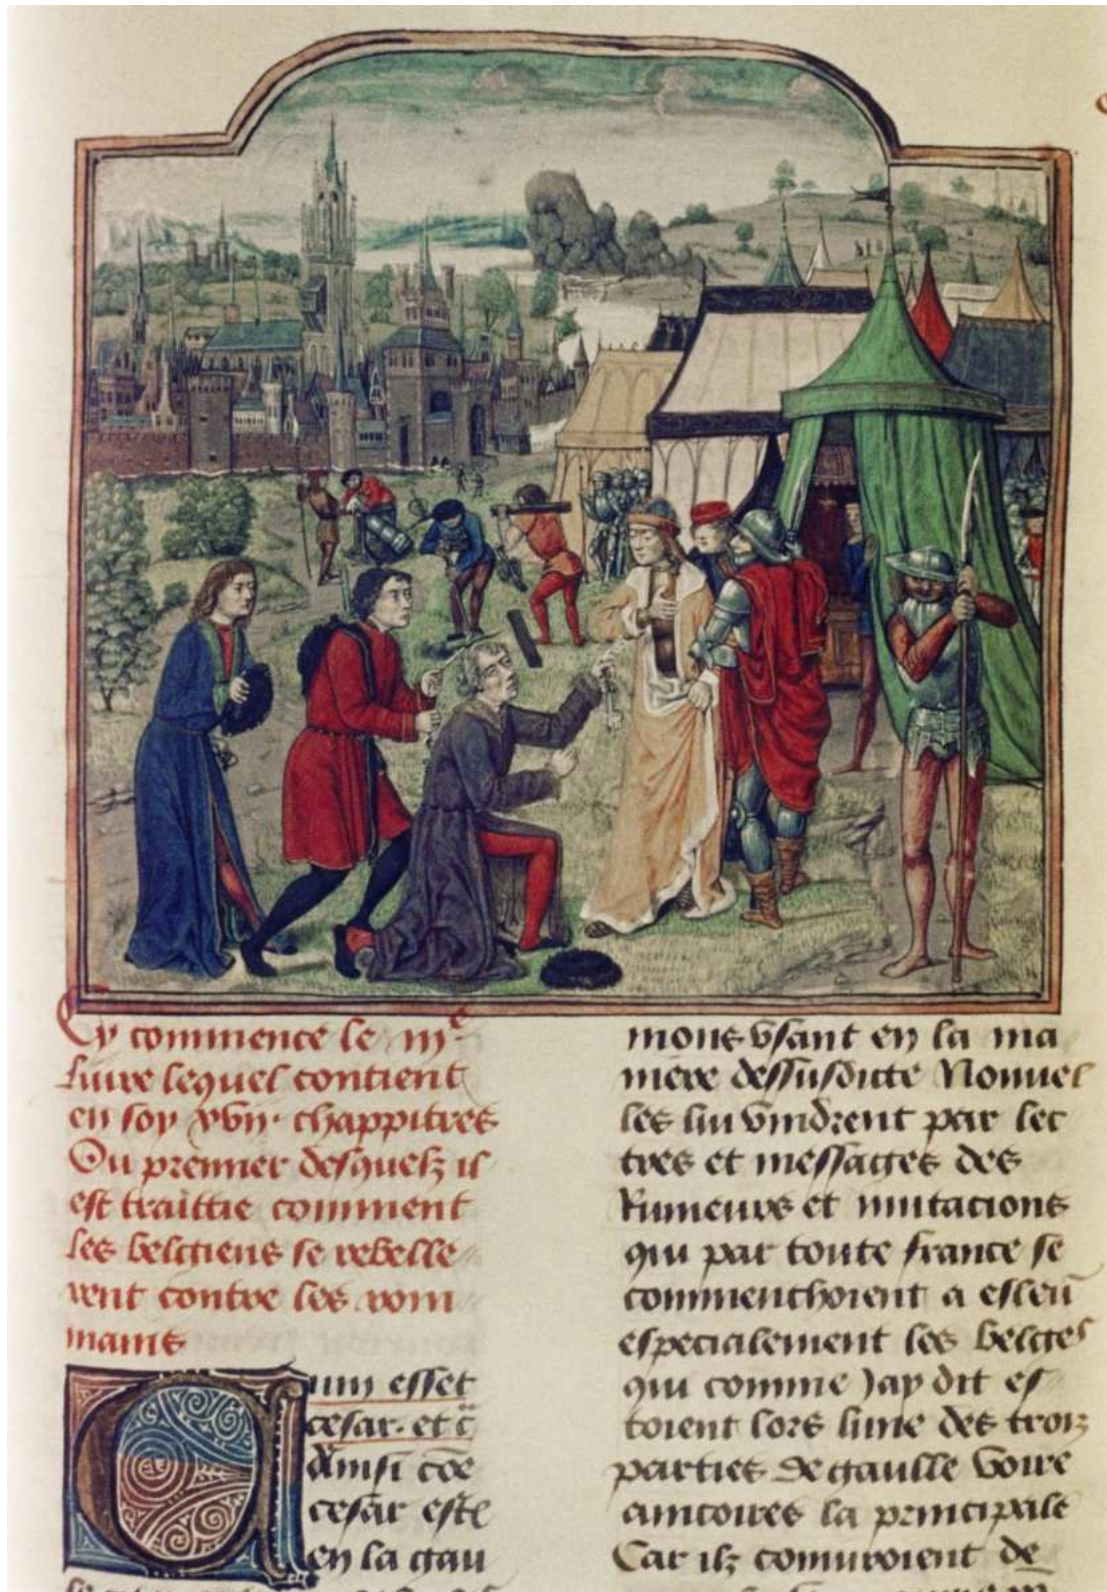 Cy commence le iij^e
livre lequel contient
en soy xvij. chappitres
Ou premier desquelz il
est traittie comment
les belgiens se rebelle
rent contre les rom
mains
Cum esset
cesar. et c̃
Ainsi cõe
cesar este
en la gau
mons usant en la ma
niere dessusdicte Nouvel
les lui vindrent par let
tres et messages des
Rumeurs et mutacions
qui par toute france se
commenchoient a eslev̄
especialement les belges
qui comme Jay dit es
toient lors lune des trois
parties de gaulle voire
encoires la principale
Car ilz comuroient de